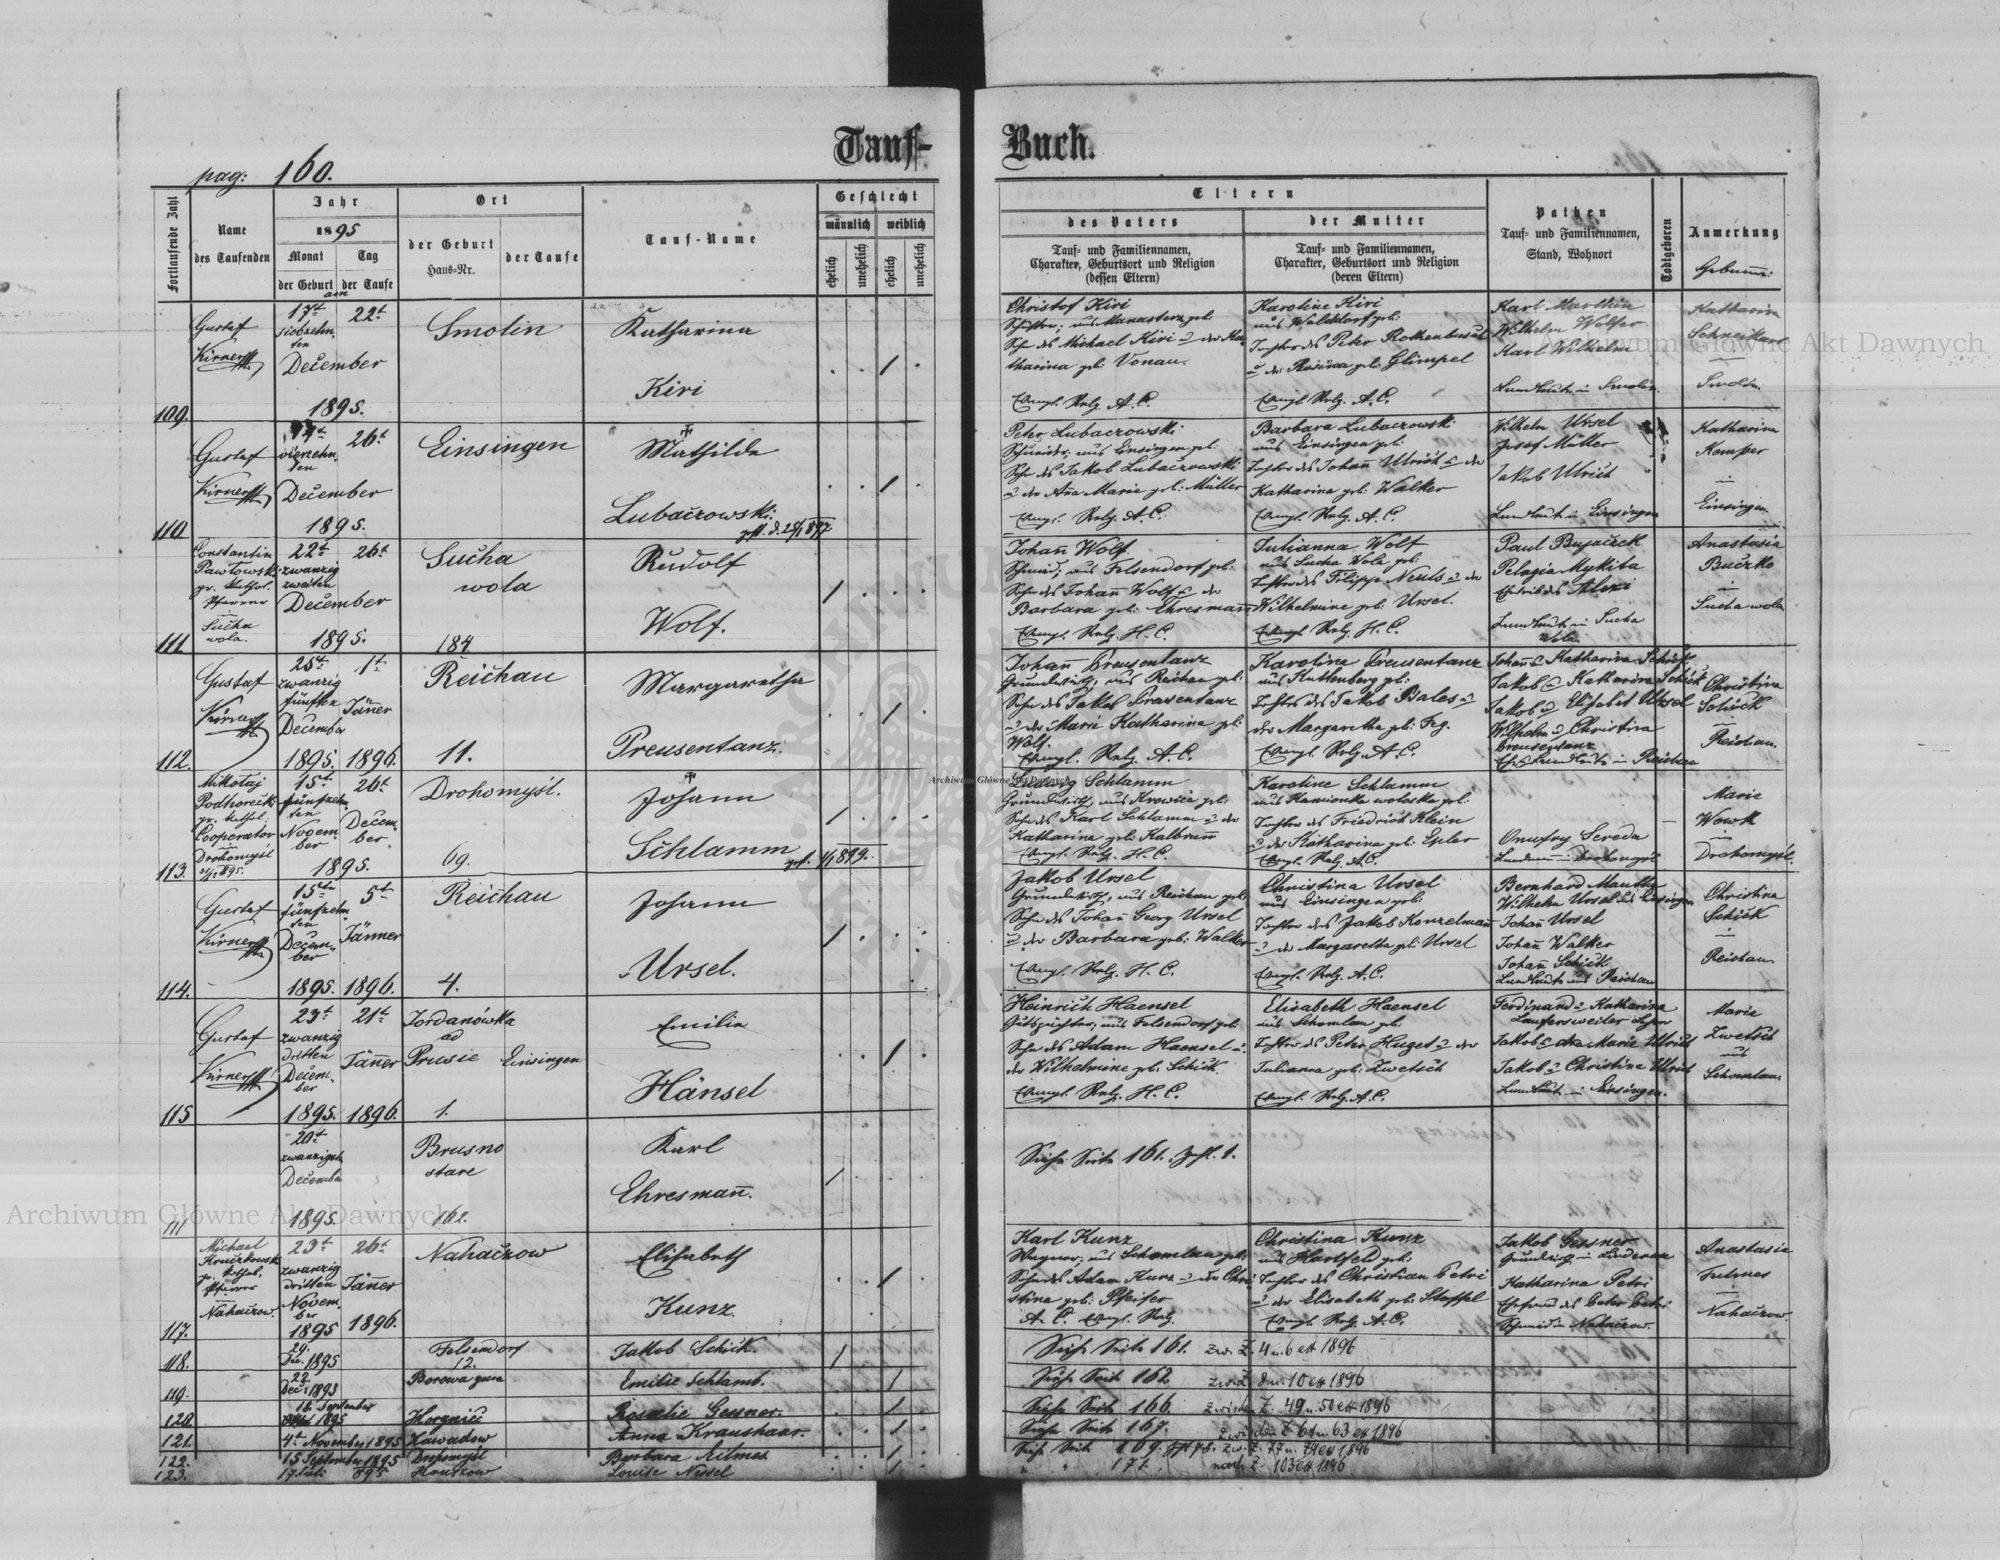 Tauf-Buch.
pag: 160.
Fortlaufende Zahl
Name des Taufenden
Jahr 1895
Monat Tag
der Geburt der Taufe
Ort
der Geburt Haus-Nr.
der Taufe
Tauf-Name
Geschlecht
männlich weiblich
ehelich unehelich ehelich unehelich
Eltern
des Vaters
Tauf- und Familiennamen, Charakter, Geburtsort und Religion (dessen Eltern)
der Mutter
Tauf- und Familiennamen, Charakter, Geburtsort und Religion (deren Eltern)
Pathen
Tauf- und Familiennamen, Stand, Wohnort
Todtgeboren
Anmerkung
109.
Gustaf
17t 22t
December
1895.
Smolin
Katharina
Kiri
Christof Kiri
Sohn des Michael Kiri u der Ka-
tharina geb: Vonau.
Evangl. Relg. A.C.
Karoline Kiri
Tochter des Peter Rothenbusch
u der Rosina geb: Glimpel
Evangl. Relg. A.C.
Karl
Wilhelm Wolfer
Karl Wilhelm
Landleute in Smolin
Katharina
Smolin
110.
Gustaf
vierzehn-
ten
26t
December
1895.
Einsingen
Mathilde
Lubaczowski
Peter Lubaczowski
aus Einsingen geb:
Sohn des Jakob Lubaczowski
u der Ana Marie geb: Müller
Evangl. Relg. A.C.
Barbara Lubaczowski
aus Einsingen geb:
Tochter des Johann Ulrich u der
Katharina geb: Walker
Evangl. Relg. A.C.
Wilhelm Ursel
Josef Müller
Jakob Ulrich
Landleute in Einsingen
Katharina
Kemper
in
Einsingen
111.
Constantin
Pawlowski
gr. kathol.
Pfarrer
Sucha
wola.
22t 26t
zwanzig
zweiten
December
1895.
Sucha
wola
184
Rudolf
Wolf.
Johann Wolf
Schmid, aus Felsendorf geb:
Sohn des Johann Wolf u der
Barbara geb: Ehresmann
Evangl. Relg. H.C.
Julianna Wolf
aus Sucha Wola geb:
Tochter des Filipp Neuls u der
Wilhelmine geb: Ursel.
Evangl. Relg. H.C.
Paul Bujaczek
Pelagia Mykita
Landleute in Sucha
Wola
Anastasia
Buczko
in
Sucha wola
112.
Gustaf
25t 1t
zwanzig
fünften
Jäner
December
1895. 1896.
Reichau
11.
Margaretha
Preusentanz.
Johann Preusentanz
Grundwirth, aus Reichau geb:
Sohn des Jakob Preusentanz
u der Marie Katharina geb:
Wolf.
Evangl. Relg. A.C.
Karoline Preusentanz
aus Kuttenberg geb:
Tochter des Jakob Bales u
der Margaretha geb: Feg.
Evangl. Relg. A.C.
Johann u Katharina Schick
Jakob u Katharina Schick
Jakob u Elisabet Ursel
Wilhelm u Christina
Preusentanz
Landleute in Reichau
Christina
Schick
in
Reichau.
113.
Mikołaj
gr. kathol.
Cooperator
Drohomyśl
15t 26t
fünfzehn-
ten
Novem-
ber
Decem-
ber.
1895.
Drohomyśl.
69.
Johann
Schlamm
Ludwig Schlamm
Grundwirth, aus Krowica geb:
Sohn des Karl Schlamm u der
Katharina geb: Kalbrunn
Evangl. Relg. H.C.
Karoline Schlamm
aus Kamionka wołoska geb:
Tochter des Friedrich Klein
u der Katharina geb: Epler
Evangl. Relg. A.C.
Onufry Sereda
Drohomyśl
Marie
Wowk
in
Drohomyśl.
114.
Gustaf
15ten 5t
fünfzehn-
ten
Decem-
ber
Jänner
1895. 1896.
Reichau
4.
Johann
Ursel.
Jakob Ursel
Grundwirth, aus Reichau geb:
Sohn des Johann Georg Ursel
u der Barbara geb: Walker
Evangl. Relg. H.C.
Christina Ursel
aus Einsingen geb:
Tochter des Jakob Konzelmann
u der Margaretha geb: Ursel
Evangl. Relg. A.C.
Bernhard Manthy
Wilhelm Ursel aus Einsingen
Johann Ursel
Johann Walker
Johann Schick
Landleute aus Reichau
Christina
Schick
in
Reichau
115
Gustaf
23t 21t
zwanzig
dritten
Decem-
ber
Jäner
1895. 1896.
Jordanówka
ad
Prusie
Einsingen
1.
Emilie
Hänsel
Heinrich Haensel
Gutspächter, aus Felsendorf geb:
Sohn des Adam Haensel u.
der Wilhelmine geb. Schick
Evangl. Relg. H.C.
Elisabeth Haensel
aus Schomlau geb:
Tochter des Peter Huget u der
Julianna geb: Zwetsch
Evangl. Relg. A.C.
Ferdinand u Katharina
Laufersweiler
Jakob u Ana Marie Ulrich
Jakob u Christina Ulrich
Landleute in Einsingen.
Marie
Zwetsch
aus
Schomlau
111
20t
zwanzigsten
December
1895.
Brusno
stare
162.
Karl
Ehresmann.
Siehe Seite 161. Zahl. 1.
117.
Michael
gr. kathol.
Pfarrer
Nahaczow.
23t 26t
zwanzig
dritten
Novem-
ber
Jäner
1895 1896.
Nahaczow
Elisabeth
Kunz
Karl Kunz
Wagner, aus Schomlau geb:
Sohn des Adam Kunz u der Chri-
stine geb: Pfeifer
A.C. Evangl. Relg.
Christina Kunz
aus Hartfeld geb:
Tochter des Christian Petri
u der Elisabeth geb: Stoffel
Evangl. Relg. A.C.
Jakob Gessner
Grundwirth in Lindenau
Katharina Petri
Ehefrau des Peter Petri
Schmid in Nahaczow.
Anastasia
Nahaczow.
118. 29. Dec. 1895 Felsendorf 12. Jakob Schick. Siehe Seite 161. zw. Z. 4 u. 6 ex 1896
119. 22. Dec. 1895 Borowa gura Emilie Schlamb. Siehe Seite 162 zw. Z. 8 u. 10 ex 1896
120. 18. September 1895 Horyniec Rosalie Gessner. Siehe Seite 166. zwischen Z. 49 u. 50 ex 1896
121. 4t November 1895 Zawadow Anna Kraushaar. Siehe Seite 167. zwischen Z. 61 u. 63 ex 1896
122. 15 September 1895 Drohomyśl Barbara Hilmes. Siehe Seite 169. zw. Z. 77 u. 79 ex 1896
123. 17. Juli 895 Hruszow Louise Nessel " " 171. nach Z. 103 ex 1896
Archiwum Główne Akt Dawnych
Archiwum Główne Akt Dawnych
Archiwum Główne Akt Dawnych